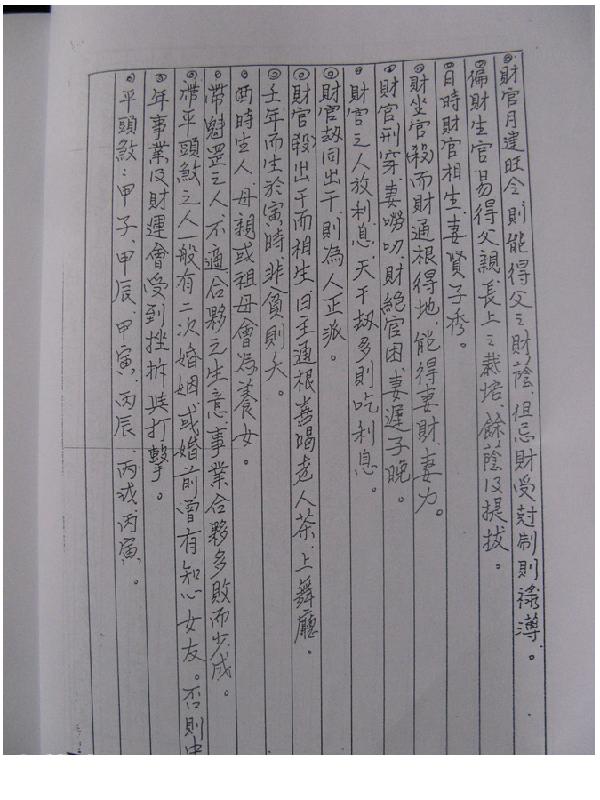 財官月建旺令、則能得父之財蔭、但忌財受尅制則祿薄。
偏財生官易得父親、長上之栽培、餘蔭及提拔。
日時財官相生妻賢子秀。
財坐官(殺)而財通根得地、能得妻財、妻力。
財官刑穿妻嘮叨、財絕官困、妻遲子晚。
財官之人放利息、天干劫多則吃利息。
財官劫同出干、則為人正派。
財官(殺)出干而相生、日主通根喜喝老人茶、上舞廳。
壬年而生於寅時、非貧則夭。
酉時生人、母親或祖母會為養女。
帶魁罡之人、不適合夥之生意、事業合夥多敗而少成。
帶平頭煞之人一般有二次婚姻、或婚前曾有知心女友。否則中
年事業及財運會受到挫折與打擊。
平頭煞：甲子、甲辰、甲寅、丙辰、丙戌、丙寅。